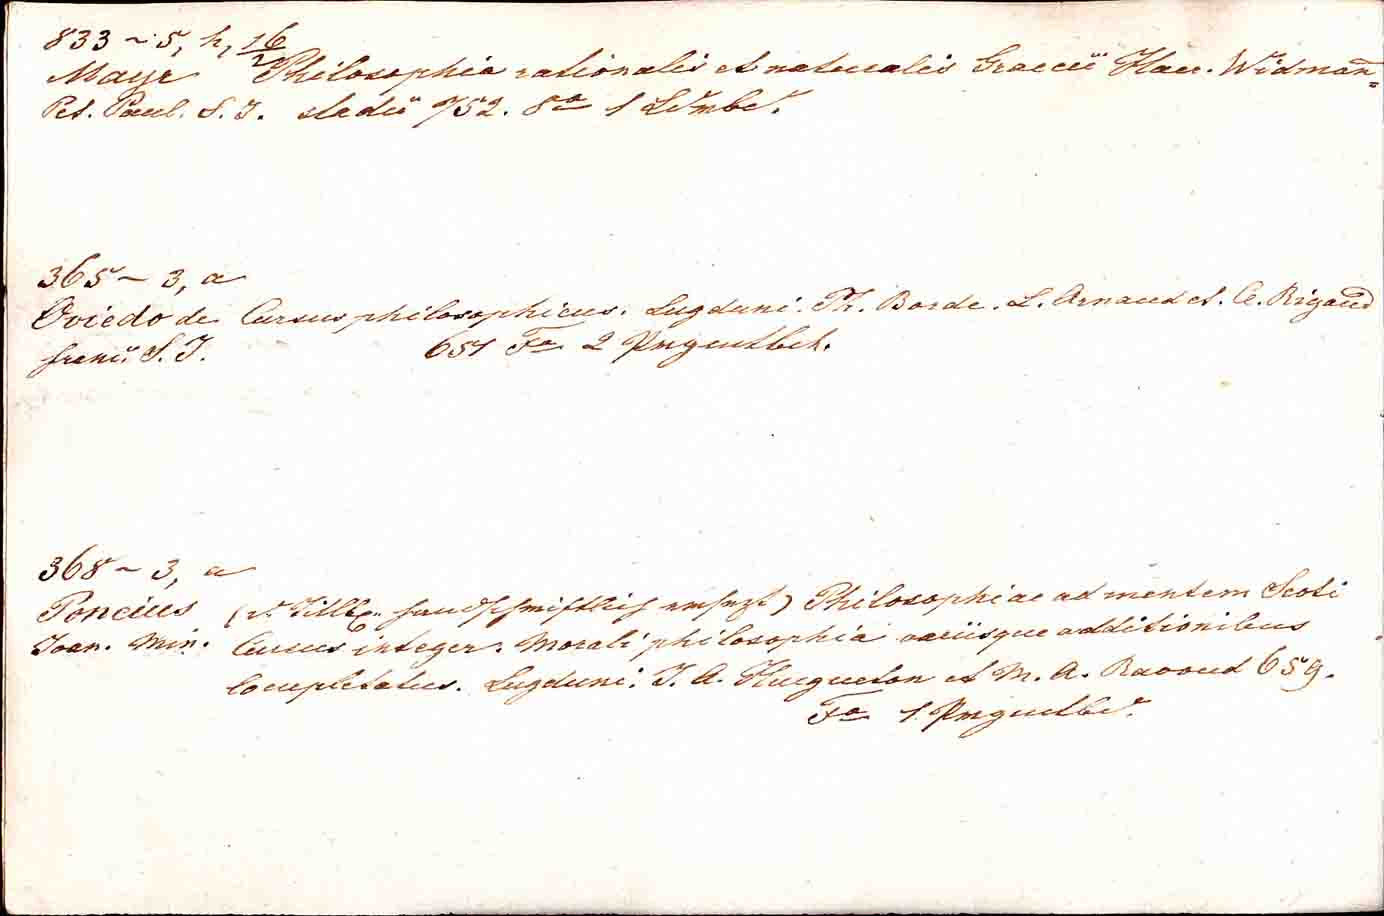 833 ~ 5, h, 16/2
Mayr Philosophia rationalis et naturalis Graecii Haer. Widman=
Pet. Paul. S. J. stadii 752. 8o 1 Ldrbd.
365 ~ 3, a
Oviedo de Cursus philosophicus. Lugduni. Ph. Borde. L. Arnaud et. C. Rigaud
franc. S. J. 651 Fo 2 Prgmtbd.
368 ~ 3, a
Poncius (d. Titlb. handschriftlich ersezt) Philosophiae ad mentem Scoti
Joan. Min. Cursus integer. Morali philosophia variisque additionibus
locupletatus. Lugduni. J. A. Huguetan et M. A. Ravaud 659.
Fo 1 Prgmtbd.